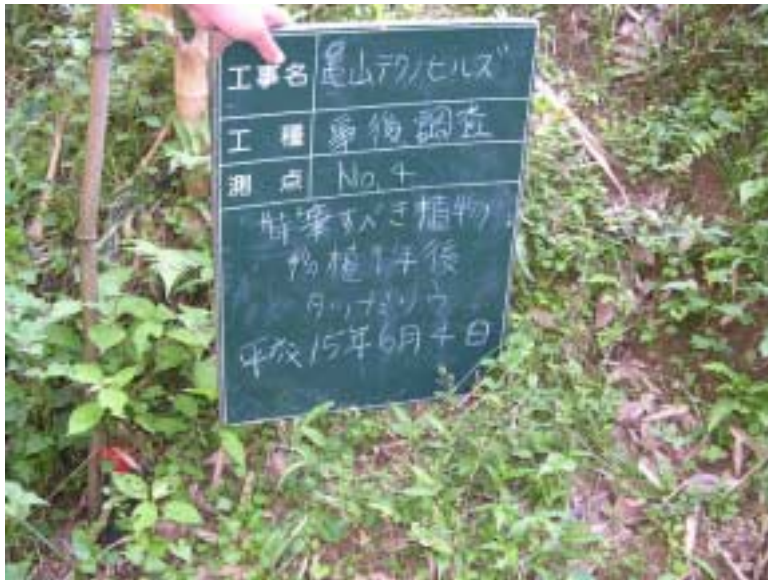 工事名 亀山テクノヒルズ
工種 事後調査
測点 No.4
特筆すべき植物
移植1年後
タツナミソウ
平成15年6月4日